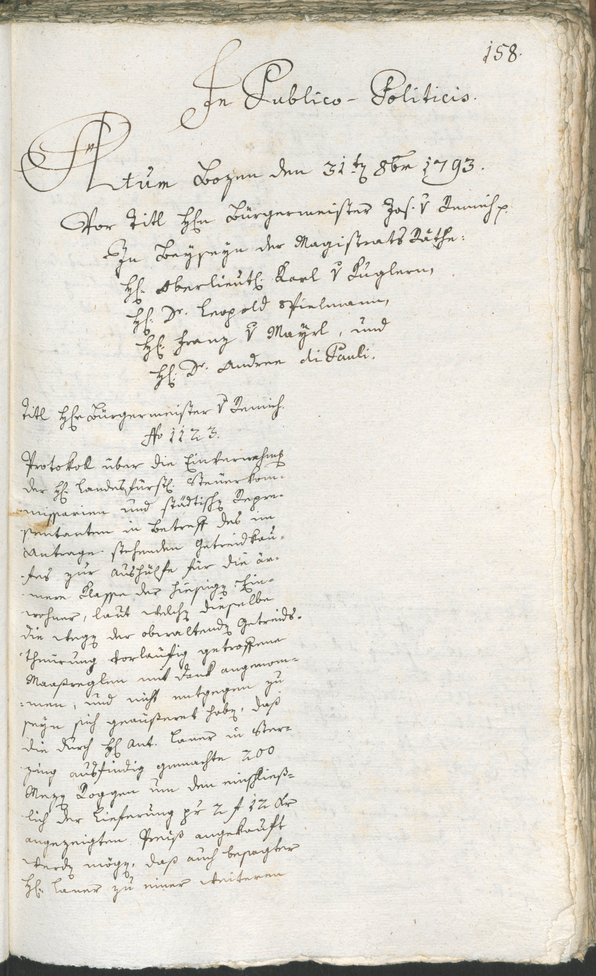 158.
In Publico-Politicis.
Actum Bozen den 31ten 8br 1793.
Vor Titl Hrn Bürgermeister Jos. v Remich
In Beyseyn der Magistrats Räthe:
H: Oberlieut: Karl v Kuglern,
H: Dr. Leopold Spielmann,
H: Franz v Mayrl, und
H: Dr. Andree di Pauli.
Titl Hr Bürgermeister v Remich.
No 1123.
Protokol über die Einvernehmg
der H: Landesfürstl Steuerkom-
missarien und städtischn Repre-
sentanten in Betreff des im
Antrage stehenden Getreidkau-
fes zur Aushülfe für die är-
mere Klasse der hiesign Ein-
wohner, laut welchn dieselbe
die wegn der obwaltendn Getreids-
theurung vorläufig getroffene
Maaßreglen mit Dank angenom-
men, und nicht entgegen zu
seyn sich geäusseret habn, daß
die durch H: Ant. Laner in Ster-
zing ausfindig gemachte 200
Mezn Roggen um den einschließ-
lich der Lieferung pr 2 f 12 kr
angezeigten Preiß angekauft
werdn mögn, daß auch besagter
H: Laner zu einer weiteren